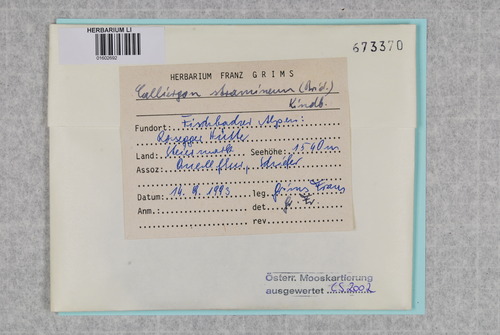 HERBARIUM LI
01602692
673370
HERBARIUM FRANZ GRIMS
Calliergon stramineum (Brid.)
Kindb.
Fundort: Fischbacher Alpen:
Rosegger Hütte
Land: Steiermark Seehöhe: 1540m
Assoz: Quellflur,
Datum: 14. 9. 1993 leg. Grims Franz
Anm.: det. Gr. Fr.
rev.
Österr. Mooskartierung
ausgewertet CS 2002